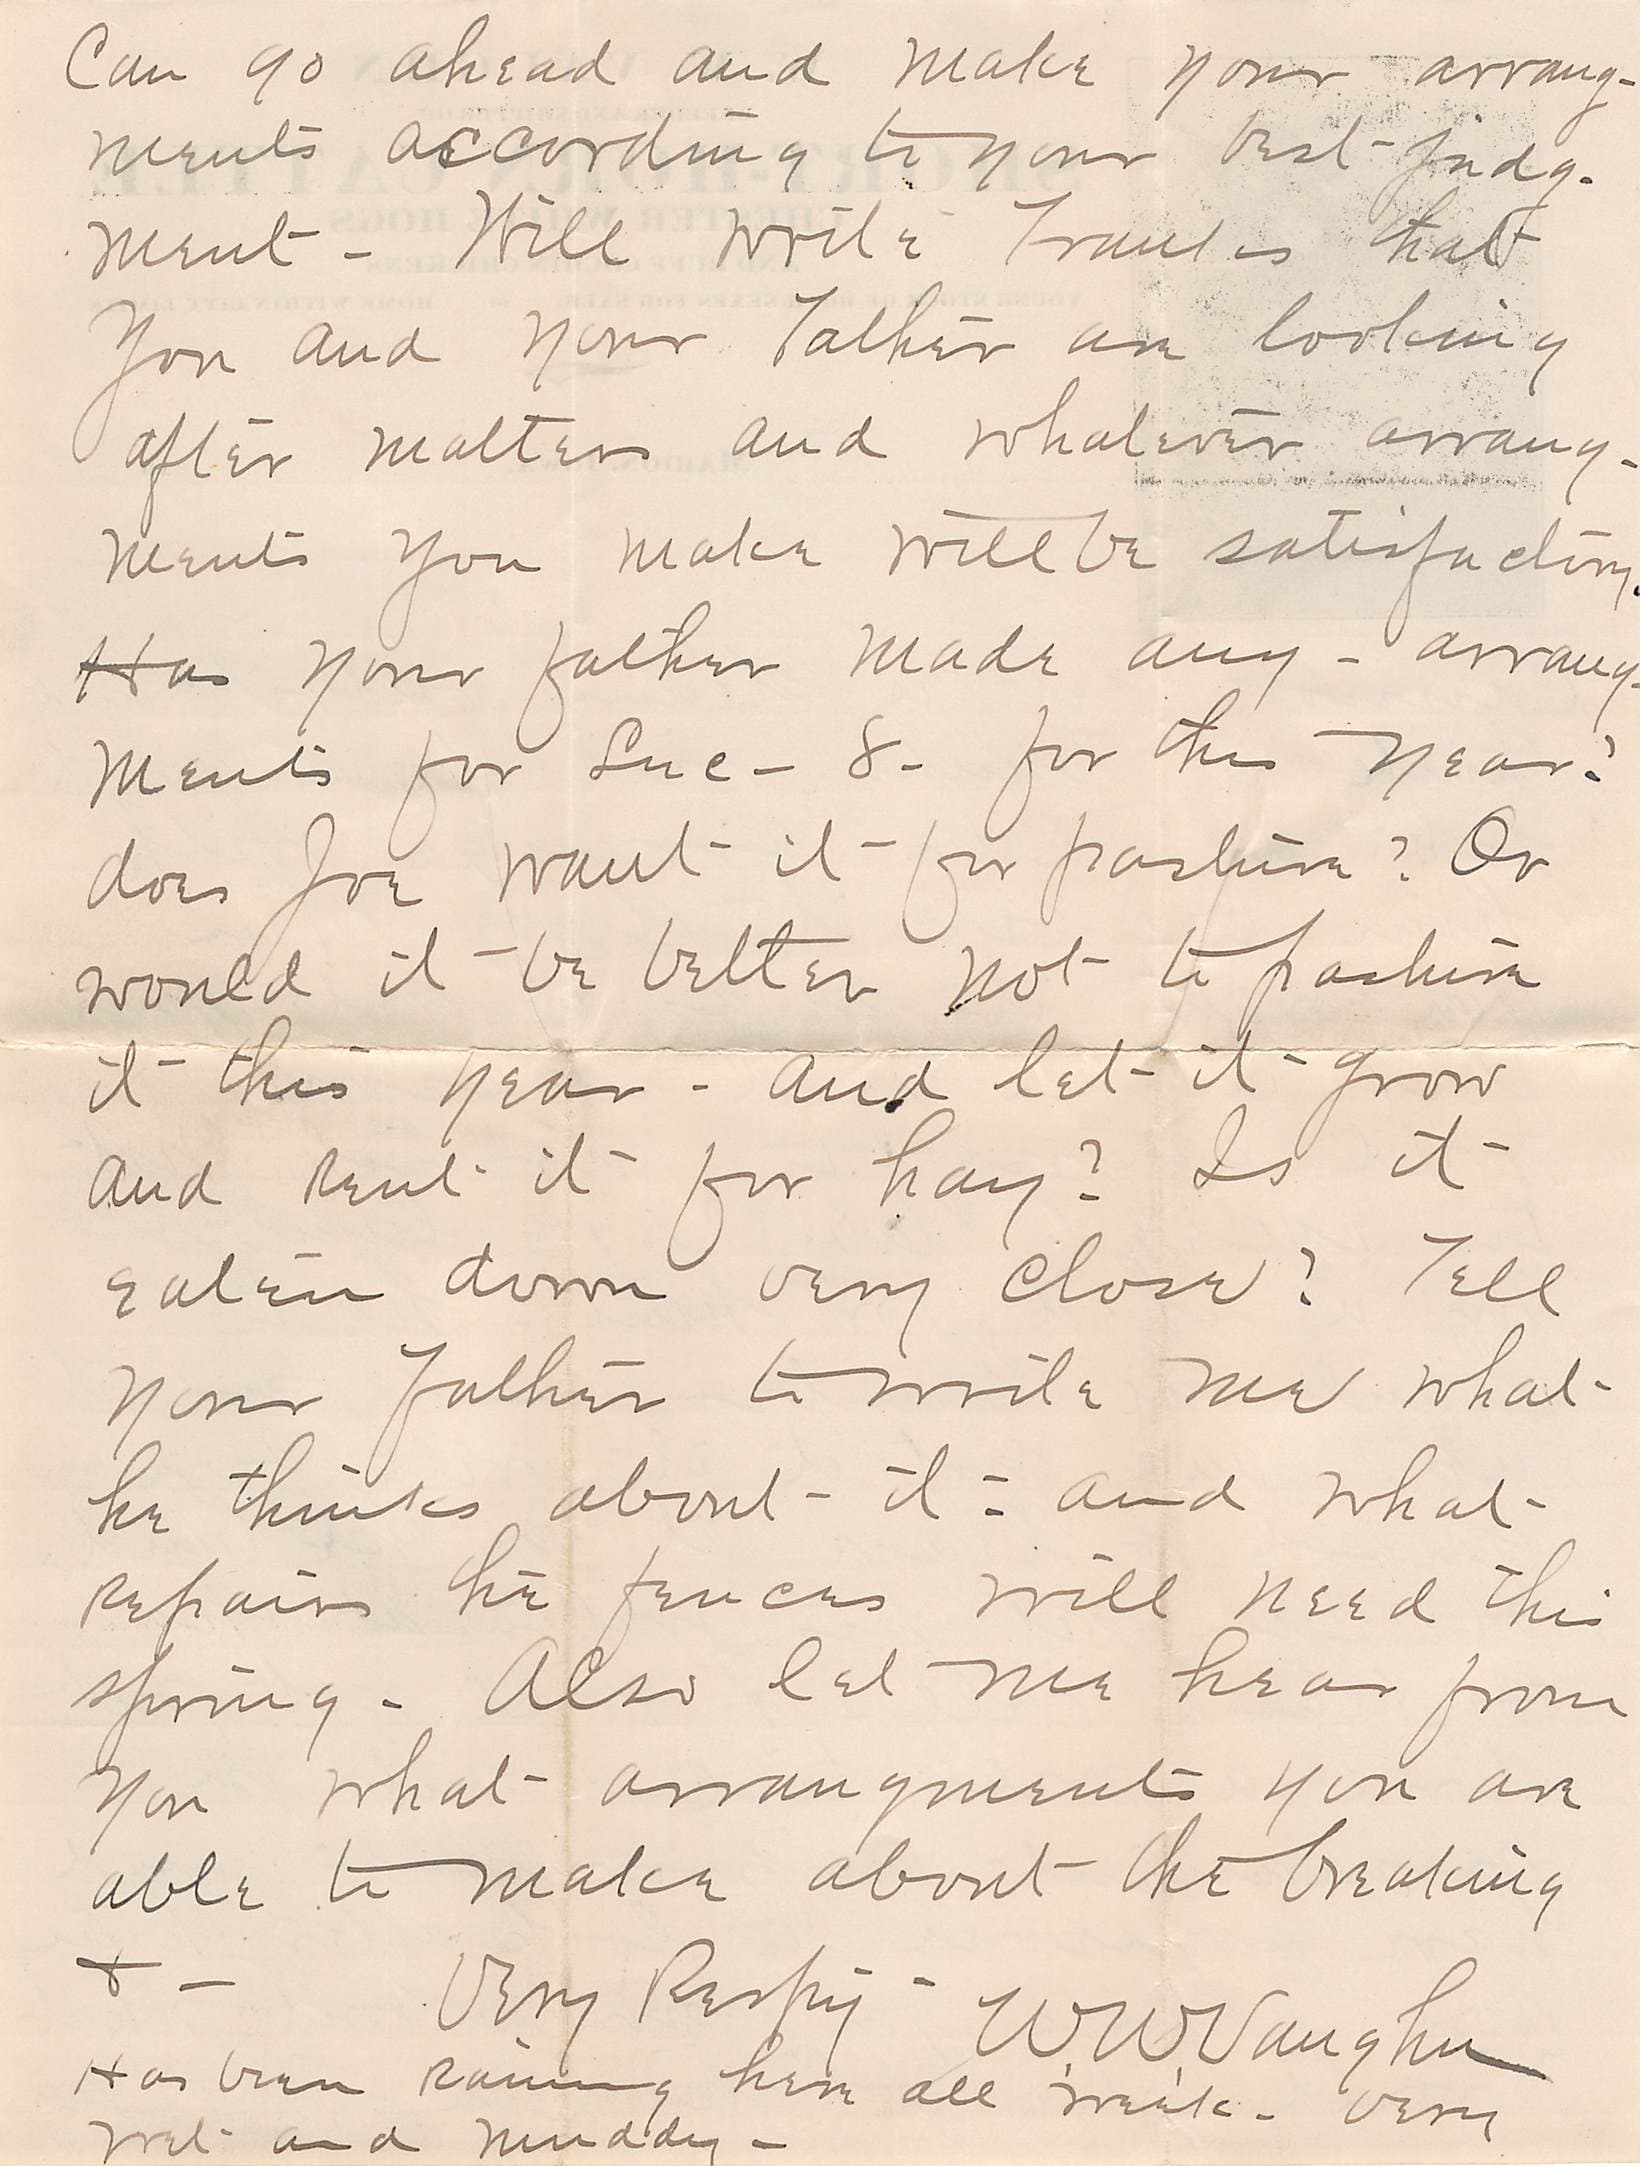 Can go ahead and make your arrang-
ments according to your best judg-
ment - Will write Franks that
You and your Father are looking
after matters and whatever arrang-
ments you make will be satisfactory.
Has your father made any - arrang-
ments for Sec - 8 - for this year?
does Joe want it for pasture? Or
would it be better not to pasture
it this year - and let it grow
and rent it for hay? Is it
eaten down very close? Tell
your Father to write me what
he thinks about it - and what
repairs the fences will need this
spring - Also let me hear from
you what arrangments you are
able to make about the breaking
+ - Very Respfy - W.W. Vaughn
Has been raining here all week - very
wet and muddy -